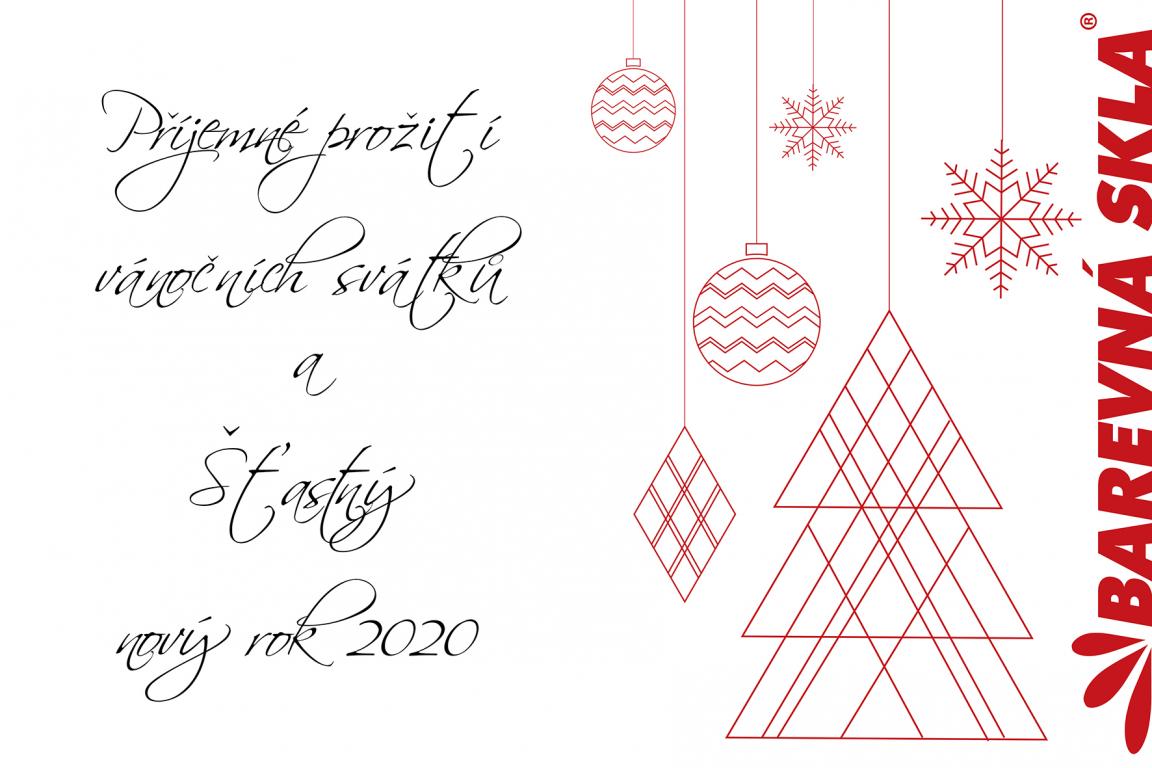 Příjemné prožití
vánočních svátků
a
Šťastný
nový rok 2020
BAREVNÁ SKLA®